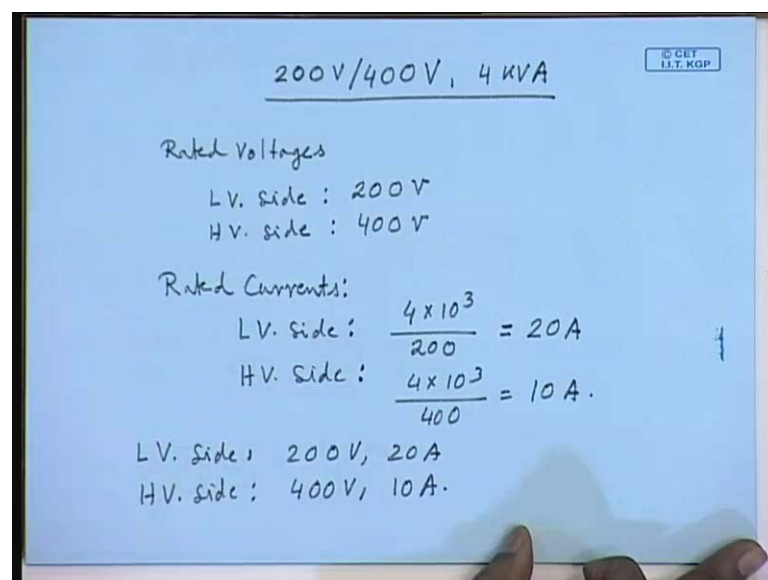 200V/400V, 4 KVA
© CET
I.I.T. KGP
Rated Voltages
LV. Side : 200V
HV. Side : 400V
Rated Currents:
LV. Side : 4 x 10³ / 200 = 20A
HV. Side : 4 x 10³ / 400 = 10 A.
LV. Side, 200V, 20A
HV. Side : 400V, 10A.